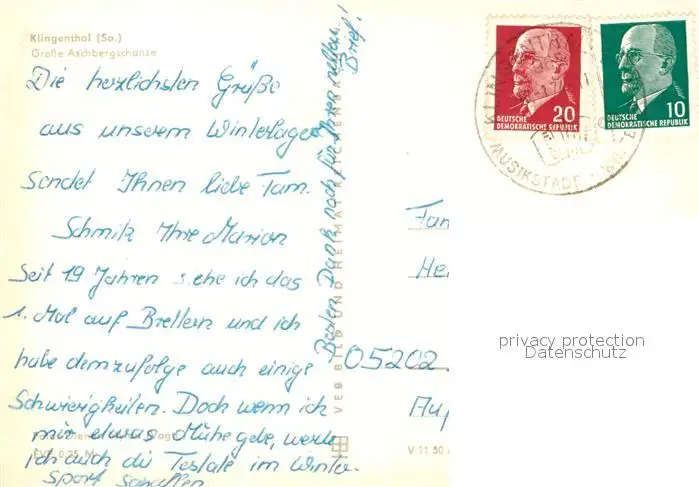 Klingenthal (Sa.)
Große Aschbergschanze
Die herzlichsten Grüße
aus unserem Winterlager
Sendet Ihnen liebe Fam.
Schmilz Ihre Marion
Seit 19 Jahren stehe ich das
1. Mal auf Brettern und ich
habe demzufolge auch einige
Schwierigkeiten. Doch wenn ich
mir etwas Mühe gebe, werde
ich auch die Testate im Winter-
sport schaffen
Besten Dank noch für Ihren netten
Brief!
VEB BILD UND HEIMAT
V 11 50
05202
DEUTSCHE
DEMOKRATISCHE REPUBLIK
20
DEUTSCHE
DEMOKRATISCHE REPUBLIK
10
MUSIKSTADT
privacy protection
Datenschutz